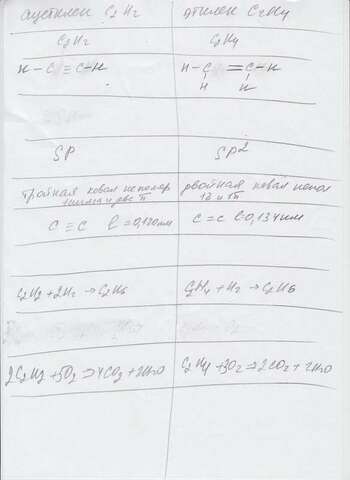 ацетилен C2H2
этилен C2H4
C2H2
C2H4
H-C≡C-H
H-C=C-H
H H
SP
SP2
тройная ковал неполяр
двойная ковал непол
1сигма и две π
1б и 1π
C≡C l=0,120нм
C=C l-0,134нм
C2H2+2H2→C2H6
C2H4+H2→C2H6
2C2H2+5O2⇒4CO2+2H2O
C2H4+3O2⇒2CO2+2H2O